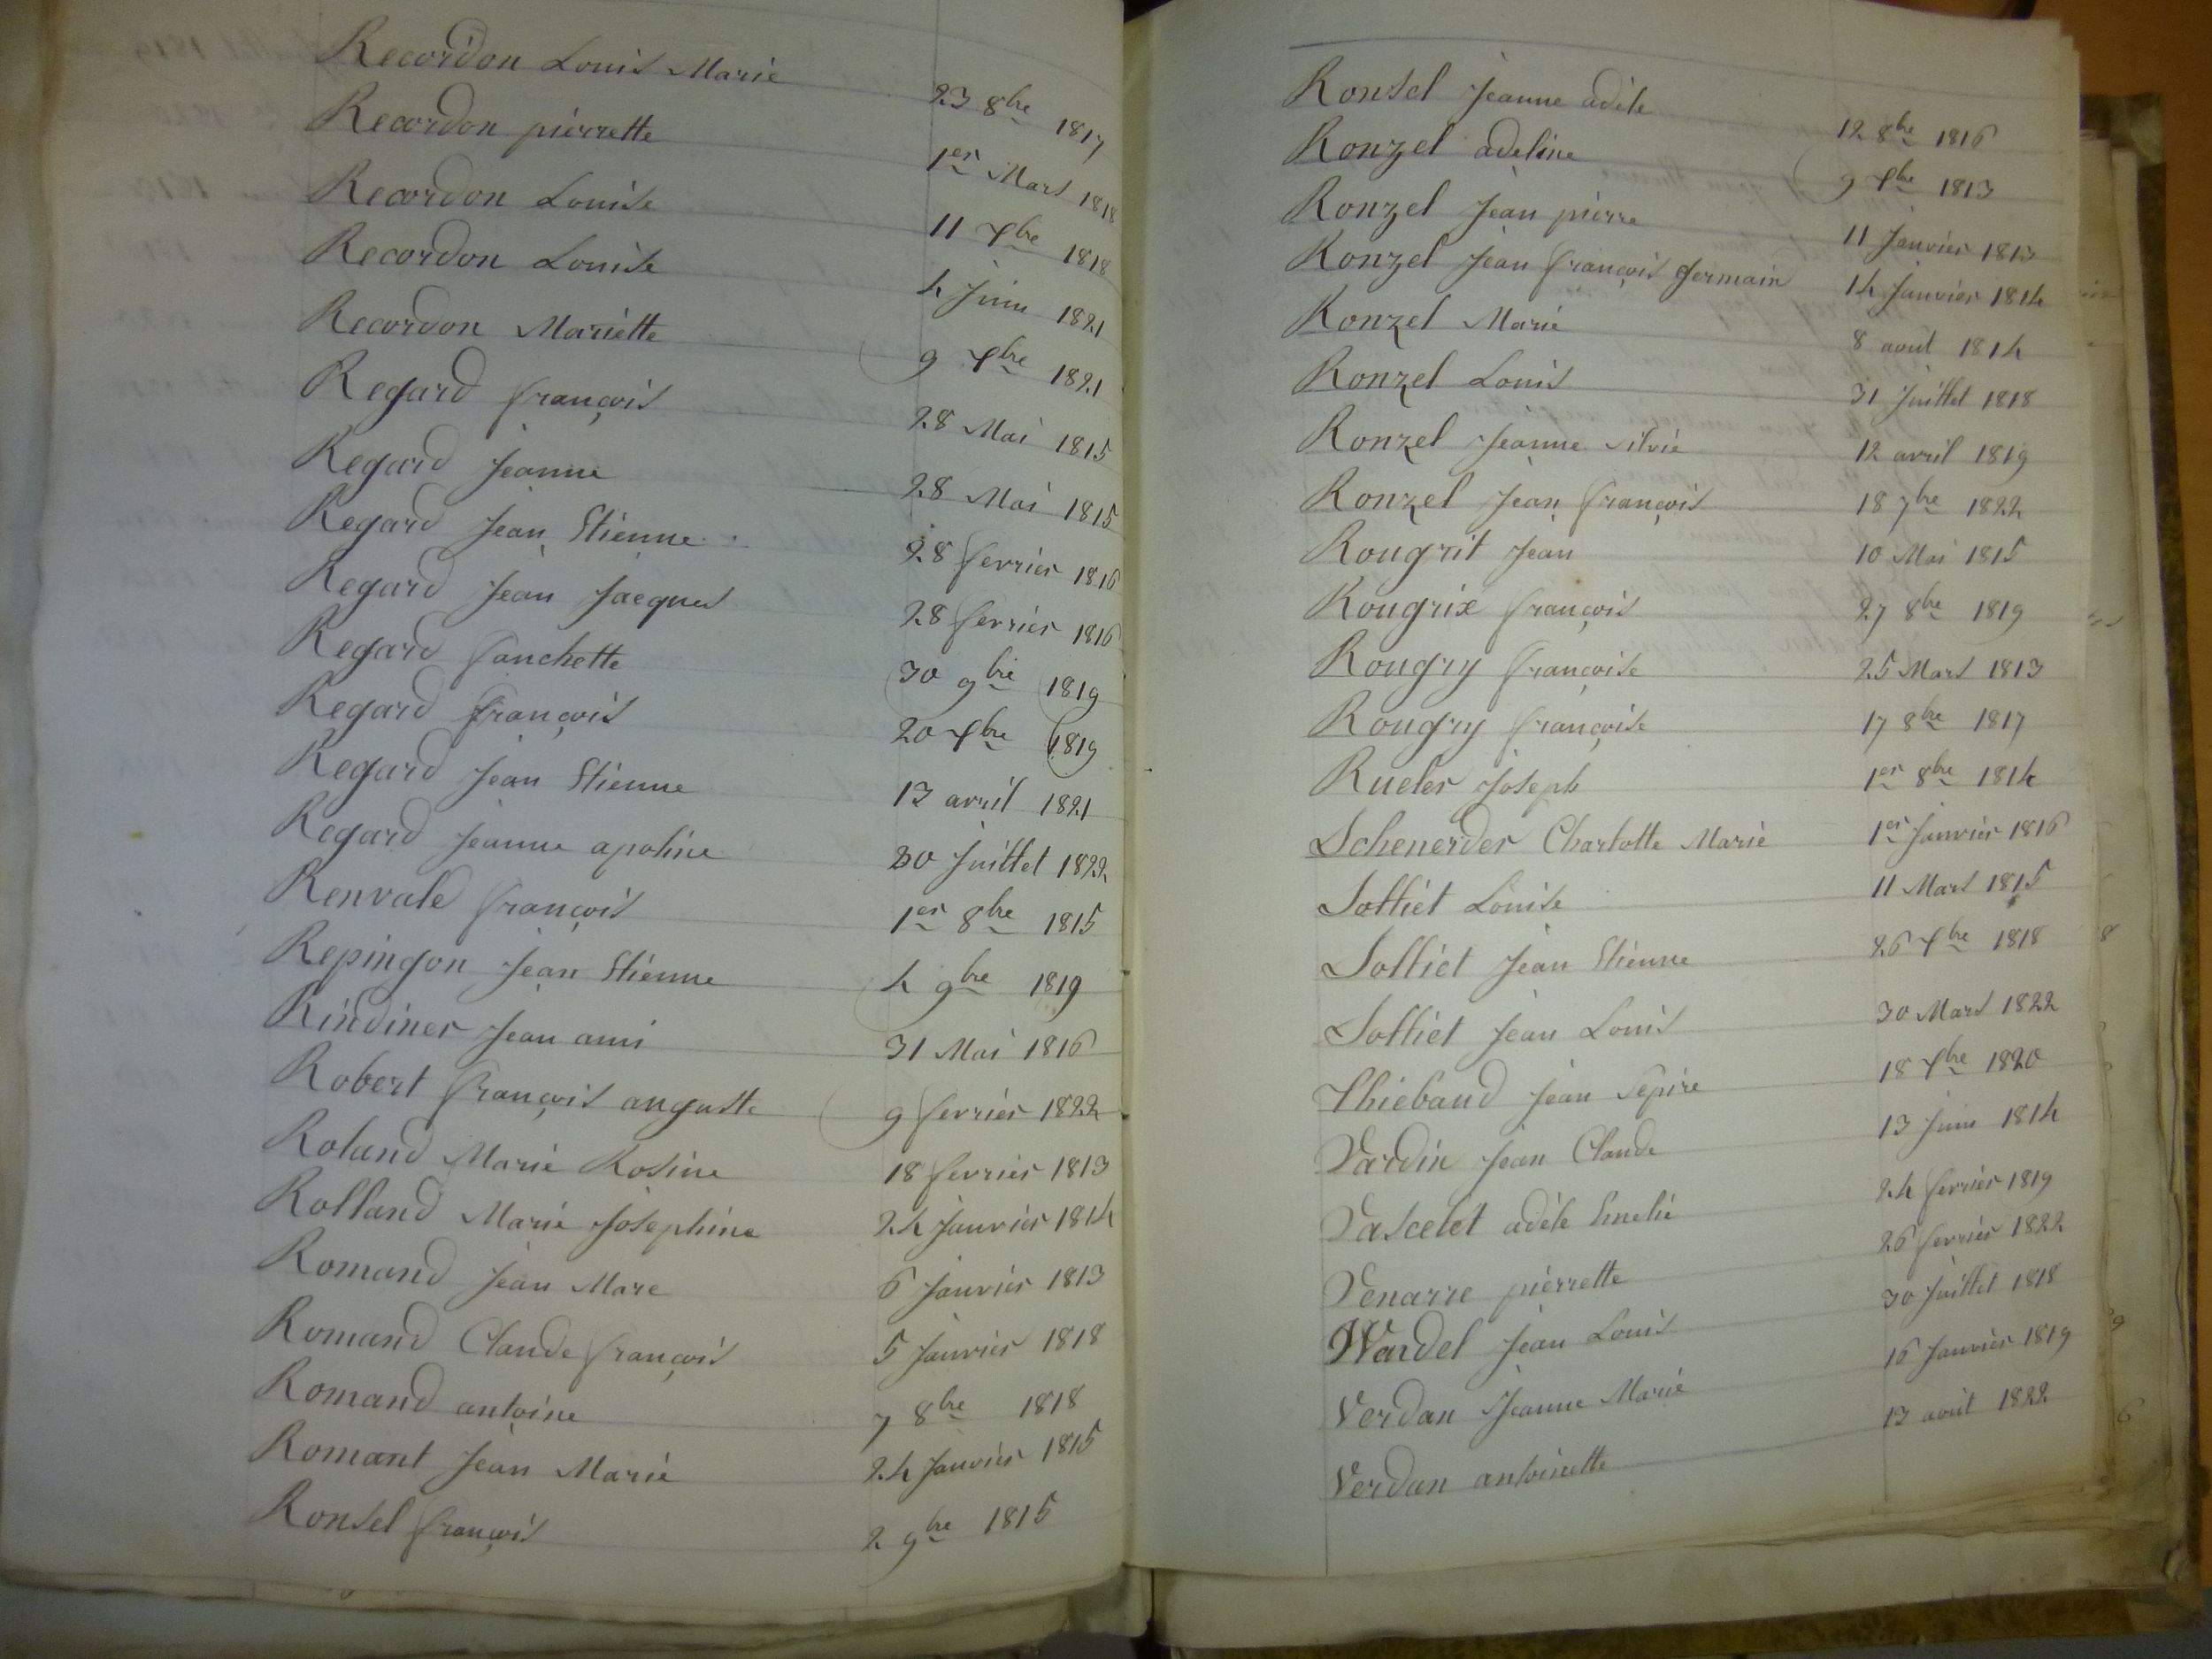 Recordon Louis Marie 23 8bre 1817
Recordon pierrette 1er Mars 1818
Recordon Louise 11 Xbre 1818
Recordon Louise 4 Juin 1821
Recordon Mariette 9 Xbre 1821
Regard françois 28 Mai 1815
Regard Jeanne 28 Mai 1815
Regard Jean Etienne 28 fevrier 1816
Regard Jean Jacques 28 fevrier 1816
Regard fanchette 30 9bre 1819
Regard françois 20 Xbre 1819
Regard Jean Etienne 13 avril 1821
Regard Jeanne apoline 30 Juillet 1822
Renvale françois 1er 8bre 1815
Repingon Jean Etienne 4 9bre 1819
Rindiner Jean ami 31 Mai 1816
Robert françois auguste 9 fevrier 1822
Roland Marie Rosine 18 fevrier 1813
Rolland Marie Josephine 24 Janvier 1814
Romand Jean Marc 6 Janvier 1813
Romand Claude françois 5 Janvier 1818
Romand antoine 7 8bre 1818
Romant Jean Marie 24 Janvier 1815
Ronsel françois 2 9bre 1815
Ronsel Jeanne adèle 12 8bre 1816
Ronzel adeline 9 Xbre 1813
Ronzel Jean pierre 11 Janvier 1813
Ronzel Jean françois Germain 14 Janvier 1814
Ronzel Marie 8 aout 1814
Ronzel Louis 31 Juillet 1818
Ronzel Jeanne silvie 12 avril 1819
Ronzel Jean françois 18 7bre 1822
Rougrit Jean 10 Mai 1815
Rougrix françois 27 8bre 1819
Rougry françoise 25 Mars 1813
Rougry françoise 17 8bre 1817
Rueler Joseph 1er 8bre 1814
Schenerder Charlotte Marie 1er Janvier 1816
Solliet Louise 11 Mars 1815
Solliet Jean Etienne 26 Xbre 1818
Solliet Jean Louis 30 Mars 1822
Thiebaud Jean 18 Xbre 1820
Vardin Jean Claude 13 Juin 1814
Vascelet adèle Emelie 24 fevrier 1819
Venarre pierrette 26 fevrier 1822
Wardel Jean Louis 30 Juillet 1818
Verdan Jeanne Marie 16 Janvier 1819
Verdan antoinette 13 aout 1822